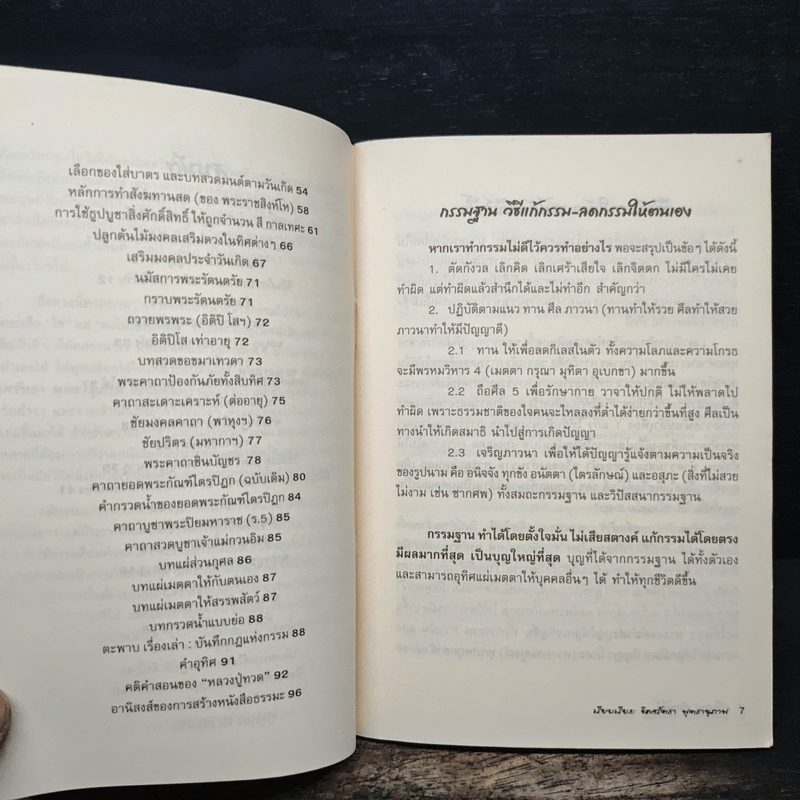 เลือกของใส่บาตร และบทสวดมนต์ตามวันเกิด 54
หลักการทำสังฆทานสด (ของ พระราชสิงห์โห) 58
การใช้ธูปบูชาสิ่งศักดิ์สิทธิ์ ให้ถูกจำนวน สี กาลเทศะ 61
ปลูกต้นไม้มงคลเสริมดวงในทิศต่างๆ 66
เสริมมงคลประจำวันเกิด 67
นมัสการพระรัตนตรัย 71
กราบพระรัตนตรัย 71
ถวายพรพระ (อิติปิ โสฯ) 72
อิติปิโส เท่าอายุ 72
บทสวดขอขมาเทวดา 73
พระคาถาป้องกันภัยทั้งสิบทิศ 73
คาถาสะเดาะเคราะห์ (ต่ออายุ) 75
ชัยมงคลคาถา (พาหุงฯ) 76
ชัยปริตร (มหากาฯ) 77
พระคาถาชินบัญชร 78
คาถายอดพระกัณฑ์ไตรปิฎก (ฉบับเดิม) 80
คำกรวดน้ำของยอดพระกัณฑ์ไตรปิฎก 84
คาถาบูชาพระปิยมหาราช (ร.5) 85
คาถาสวดบูชาเจ้าแม่กวนอิม 85
บทแผ่ส่วนกุศล 86
บทแผ่เมตตาให้กับตนเอง 87
บทแผ่เมตตาให้สรรพสัตว์ 87
บทกรวดน้ำแบบย่อ 88
ตะพาบ เรื่องเล่า : บันทึกกฎแห่งกรรม 88
คำอุทิศ 91
คติคำสอนของ "หลวงปู่ทวด" 92
อานิสงส์ของการสร้างหนังสือธรรมะ 96
กรรมฐาน วิธีแก้กรรม-ลดกรรมให้ตนเอง
หากเราทำกรรมไม่ดีไว้ควรทำอย่างไร พอจะสรุปเป็นข้อๆ ได้ดังนี้
1. ตัดกังวล เลิกคิด เลิกเศร้าเสียใจ เลิกจิตตก ไม่มีใครไม่เคย
ทำผิด แต่ทำผิดแล้วสำนึกได้และไม่ทำอีก สำคัญกว่า
2. ปฏิบัติตามแนว ทาน ศีล ภาวนา (ทานทำให้รวย ศีลทำให้สวย
ภาวนาทำให้มีปัญญาดี)
2.1 ทาน ให้เพื่อลดกิเลสในตัว ทั้งความโลภและความโกรธ
จะมีพรหมวิหาร 4 (เมตตา กรุณา มุทิตา อุเบกขา) มากขึ้น
2.2 ถือศีล 5 เพื่อรักษากาย วาจาให้ปกติ ไม่ให้พลาดไป
ทำผิด เพราะธรรมชาติของใจคนจะไหลลงที่ต่ำได้ง่ายกว่าขึ้นที่สูง ศีลเป็น
ทางนำให้เกิดสมาธิ นำไปสู่การเกิดปัญญา
2.3 เจริญภาวนา เพื่อให้ได้ปัญญารู้แจ้งตามความเป็นจริง
ของรูปนาม คือ อนิจจัง ทุกขัง อนัตตา (ไตรลักษณ์) และอสุภะ (สิ่งที่ไม่สวย
ไม่งาม เช่น ซากศพ) ทั้งสมถะกรรมฐาน และวิปัสสนากรรมฐาน
กรรมฐาน ทำได้โดยตั้งใจมั่น ไม่เสียสตางค์ แก้กรรมได้โดยตรง
มีผลมากที่สุด เป็นบุญใหญ่ที่สุด บุญที่ได้จากกรรมฐาน ได้ทั้งตัวเอง
และสามารถอุทิศแผ่เมตตาให้บุคคลอื่นๆ ได้ ทำให้ทุกชีวิตดีขึ้น
เรียบเรียง: จิตตวัตรา พุทธานุภาพ 7